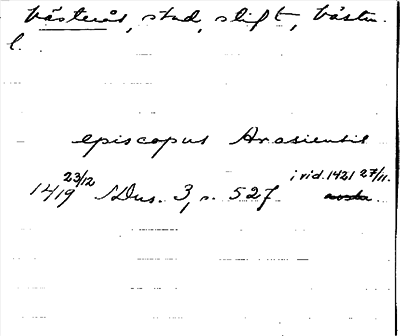 Västerås, stad, stift, Västm.
l.
episcopus Arosiensis
i vid. 1421 27/11.
1419 23/12 SDns. 3, s. 527